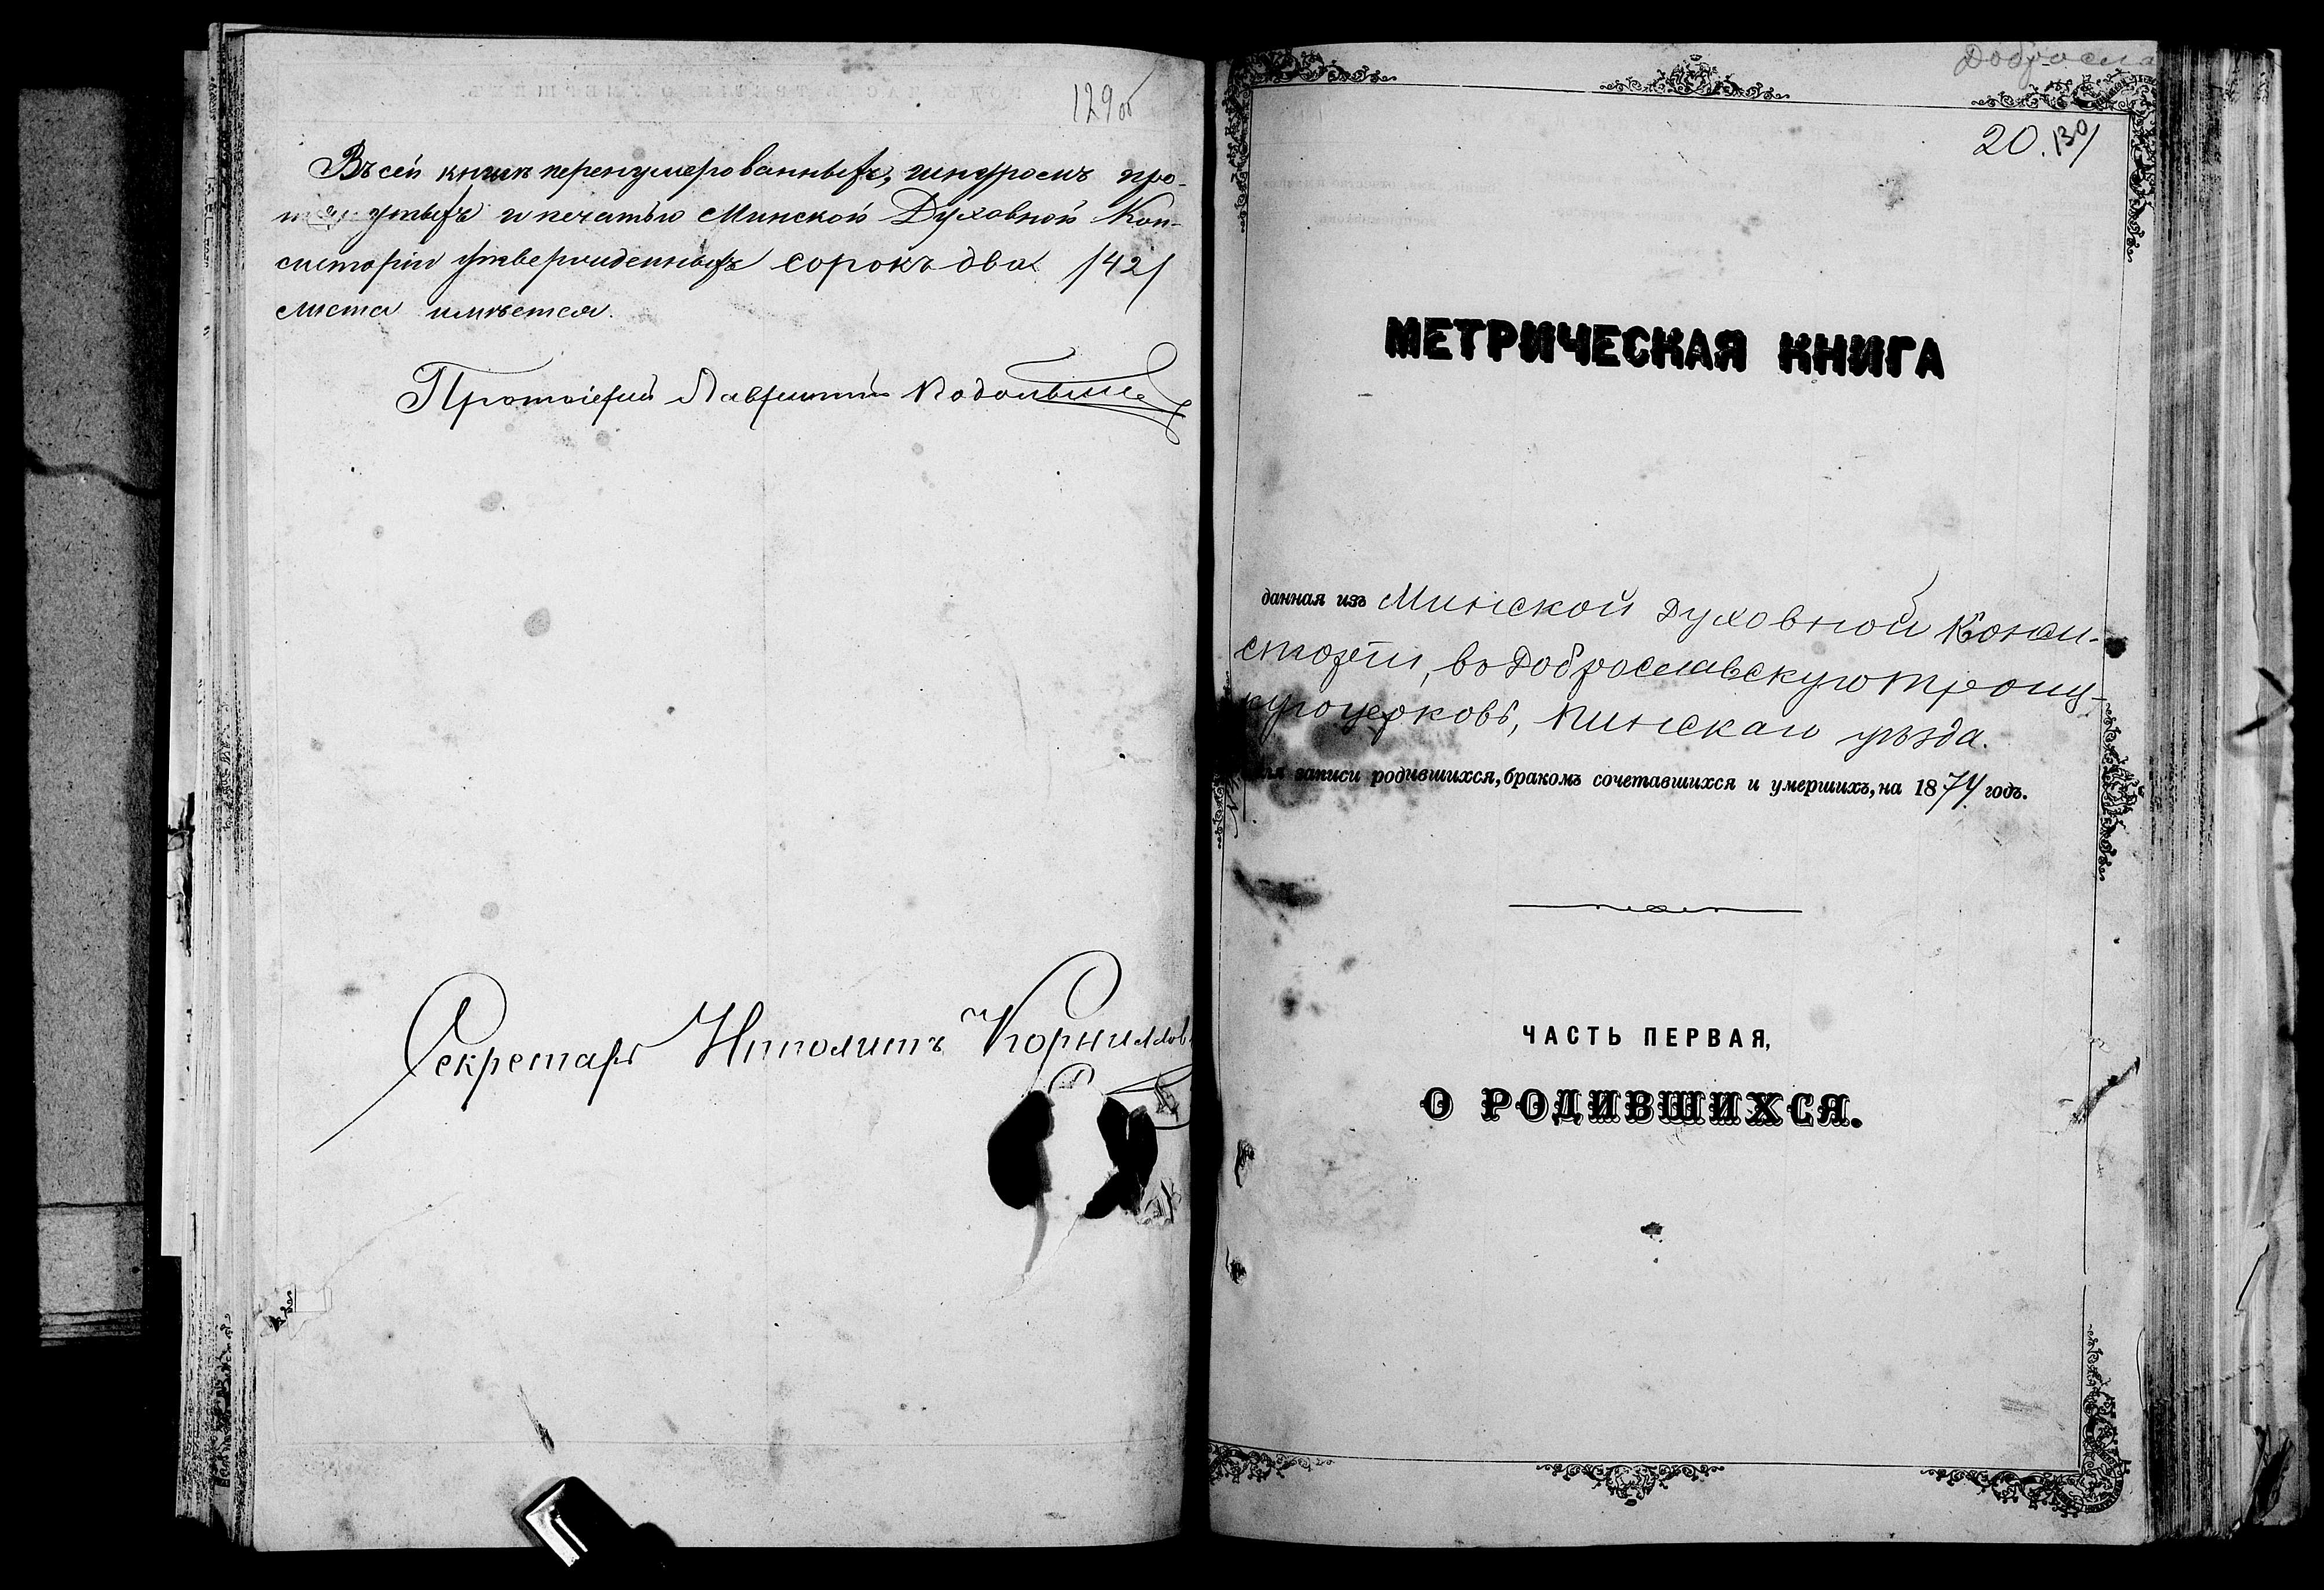 129об
Въ сей книгѣ перенумерованныхъ, шнуромъ про-
утыхъ и печатью Минской Духовной Кон-
систоріи утвержденныхъ сорокъ два /42/
листа имѣется.
Протоіерей Лаврентій
Секретарь Ипполитъ Корнилов
Добросла
20. 130/
МЕТРИЧЕСКАЯ КНИГА
данная изъ Минской Духовной Конси-
сторіи, въ Доброславскую Троиц-
кую церковь, Пинскаго уѣзда.
для записи родившихся, бракомъ сочетавшихся и умершихъ, на 1874 годъ.
ЧАСТЬ ПЕРВАЯ,
О РОДИВШИХСЯ.